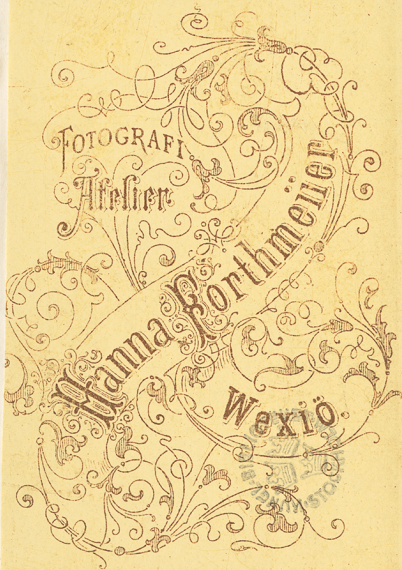 FOTOGRAFI
Atelier
Hanna Forthmeüer
Wexiö.